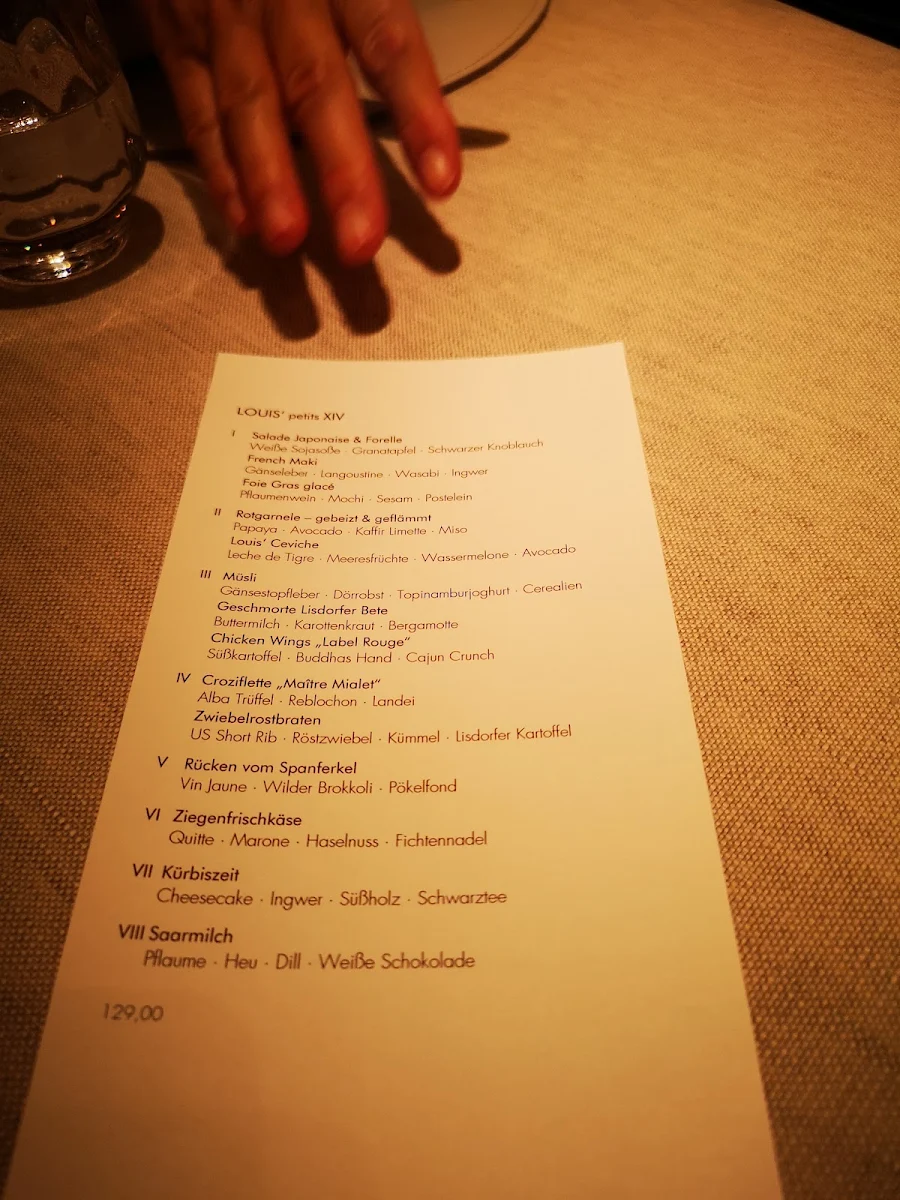 LOUIS' petits XIV
I Salade Japonaise & Forelle
Weiße Sojasoße · Granatapfel · Schwarzer Knoblauch
French Maki
Gänseleber · Langoustine · Wasabi · Ingwer
Foie Gras glacé
Pflaumenwein · Mochi · Sesam · Postelein
II Rotgarnele – gebeizt & geflämmt
Papaya · Avocado · Kaffir Limette · Miso
Louis' Ceviche
Leche de Tigre · Meeresfrüchte · Wassermelone · Avocado
III Müsli
Gänsestopfleber · Dörrobst · Topinamburjoghurt · Cerealien
Geschmorte Lisdorfer Bete
Buttermilch · Karottenkraut · Bergamotte
Chicken Wings „Label Rouge"
Süßkartoffel · Buddhas Hand · Cajun Crunch
IV Croziflette „Maître Mialet"
Alba Trüffel · Reblochon · Landei
Zwiebelrostbraten
US Short Rib · Röstzwiebel · Kümmel · Lisdorfer Kartoffel
V Rücken vom Spanferkel
Vin Jaune · Wilder Brokkoli · Pökelfond
VI Ziegenfrischkäse
Quitte · Marone · Haselnuss · Fichtennadel
VII Kürbiszeit
Cheesecake · Ingwer · Süßholz · Schwarztee
VIII Saarmilch
Pflaume · Heu · Dill · Weiße Schokolade
129,00